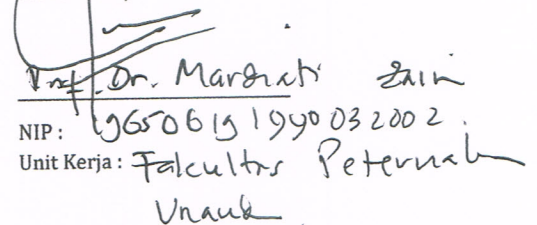 Prof. Dr. Mardiati Zain
NIP : 196506191990032002.
Unit Kerja : Fakultas Peternakan
Unand